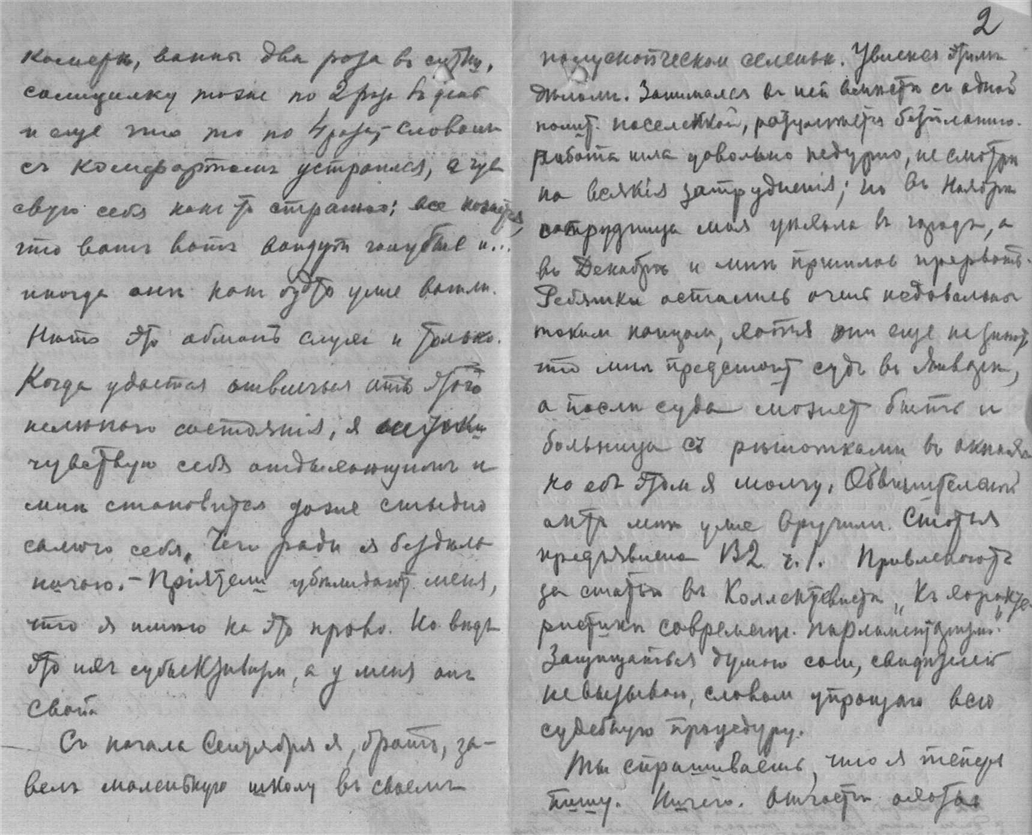 камеры, ванны два раза в сутки,
салицилку тоже по 2 раза в день
и еще что то по 4 раза, словом
съ комфортомъ устроился, а чув
ствую себя как то страшно; все кажется,
что вотъ вотъ войдутъ голубые и...
иногда они как будто уже вошли.
Но это обманъ слуха и только.
Когда удается отвлечься отъ этого
нелепаго состоянія, я
чувствую себя отдыхающимъ и
мнѣ становится даже стыдно
самого себя. Чего ради я бездельни
чаю. – Пріятели убѣждают меня,
что я имѣю на это право. Но ведь
это ихъ субъективизм, а у меня он
свой.
Съ начала Сентября я, братъ, за-
велъ маленькую школу въ своемъ
2
полускопческом селеньи. Увлекся этим
дѣломъ. Занимался въ ней вместѣ съ одной
полит. поселенкой,
работа шла довольно недурно, несмотря
на всякія затрудненія; но въ Ноябрѣ
сотрудница моя уѣхала въ городъ, а
въ Декабрѣ и мнѣ пришлось прервать.
Ребятки остались очень недовольны
таким концом, хотя они еще не знают
что мнѣ предстоит судъ въ Якутске,
а после суда может быть и
больница съ решотками въ окнахъ
но объ этом я молчу. Обвинительный
актъ мнѣ уже вручили. Статья
предъявлена 132 ч. 1. Привлекаютъ
за статью въ Коллективистѣ „Къ характе
ристики современ. парламентаризма".
Защищаться думаю сам, свидѣтелей
не вызываю, словом упрощаю всю
судебную процедуру.
Ты спрашиваешь, что я теперь
пишу. Ничего. Отчасти